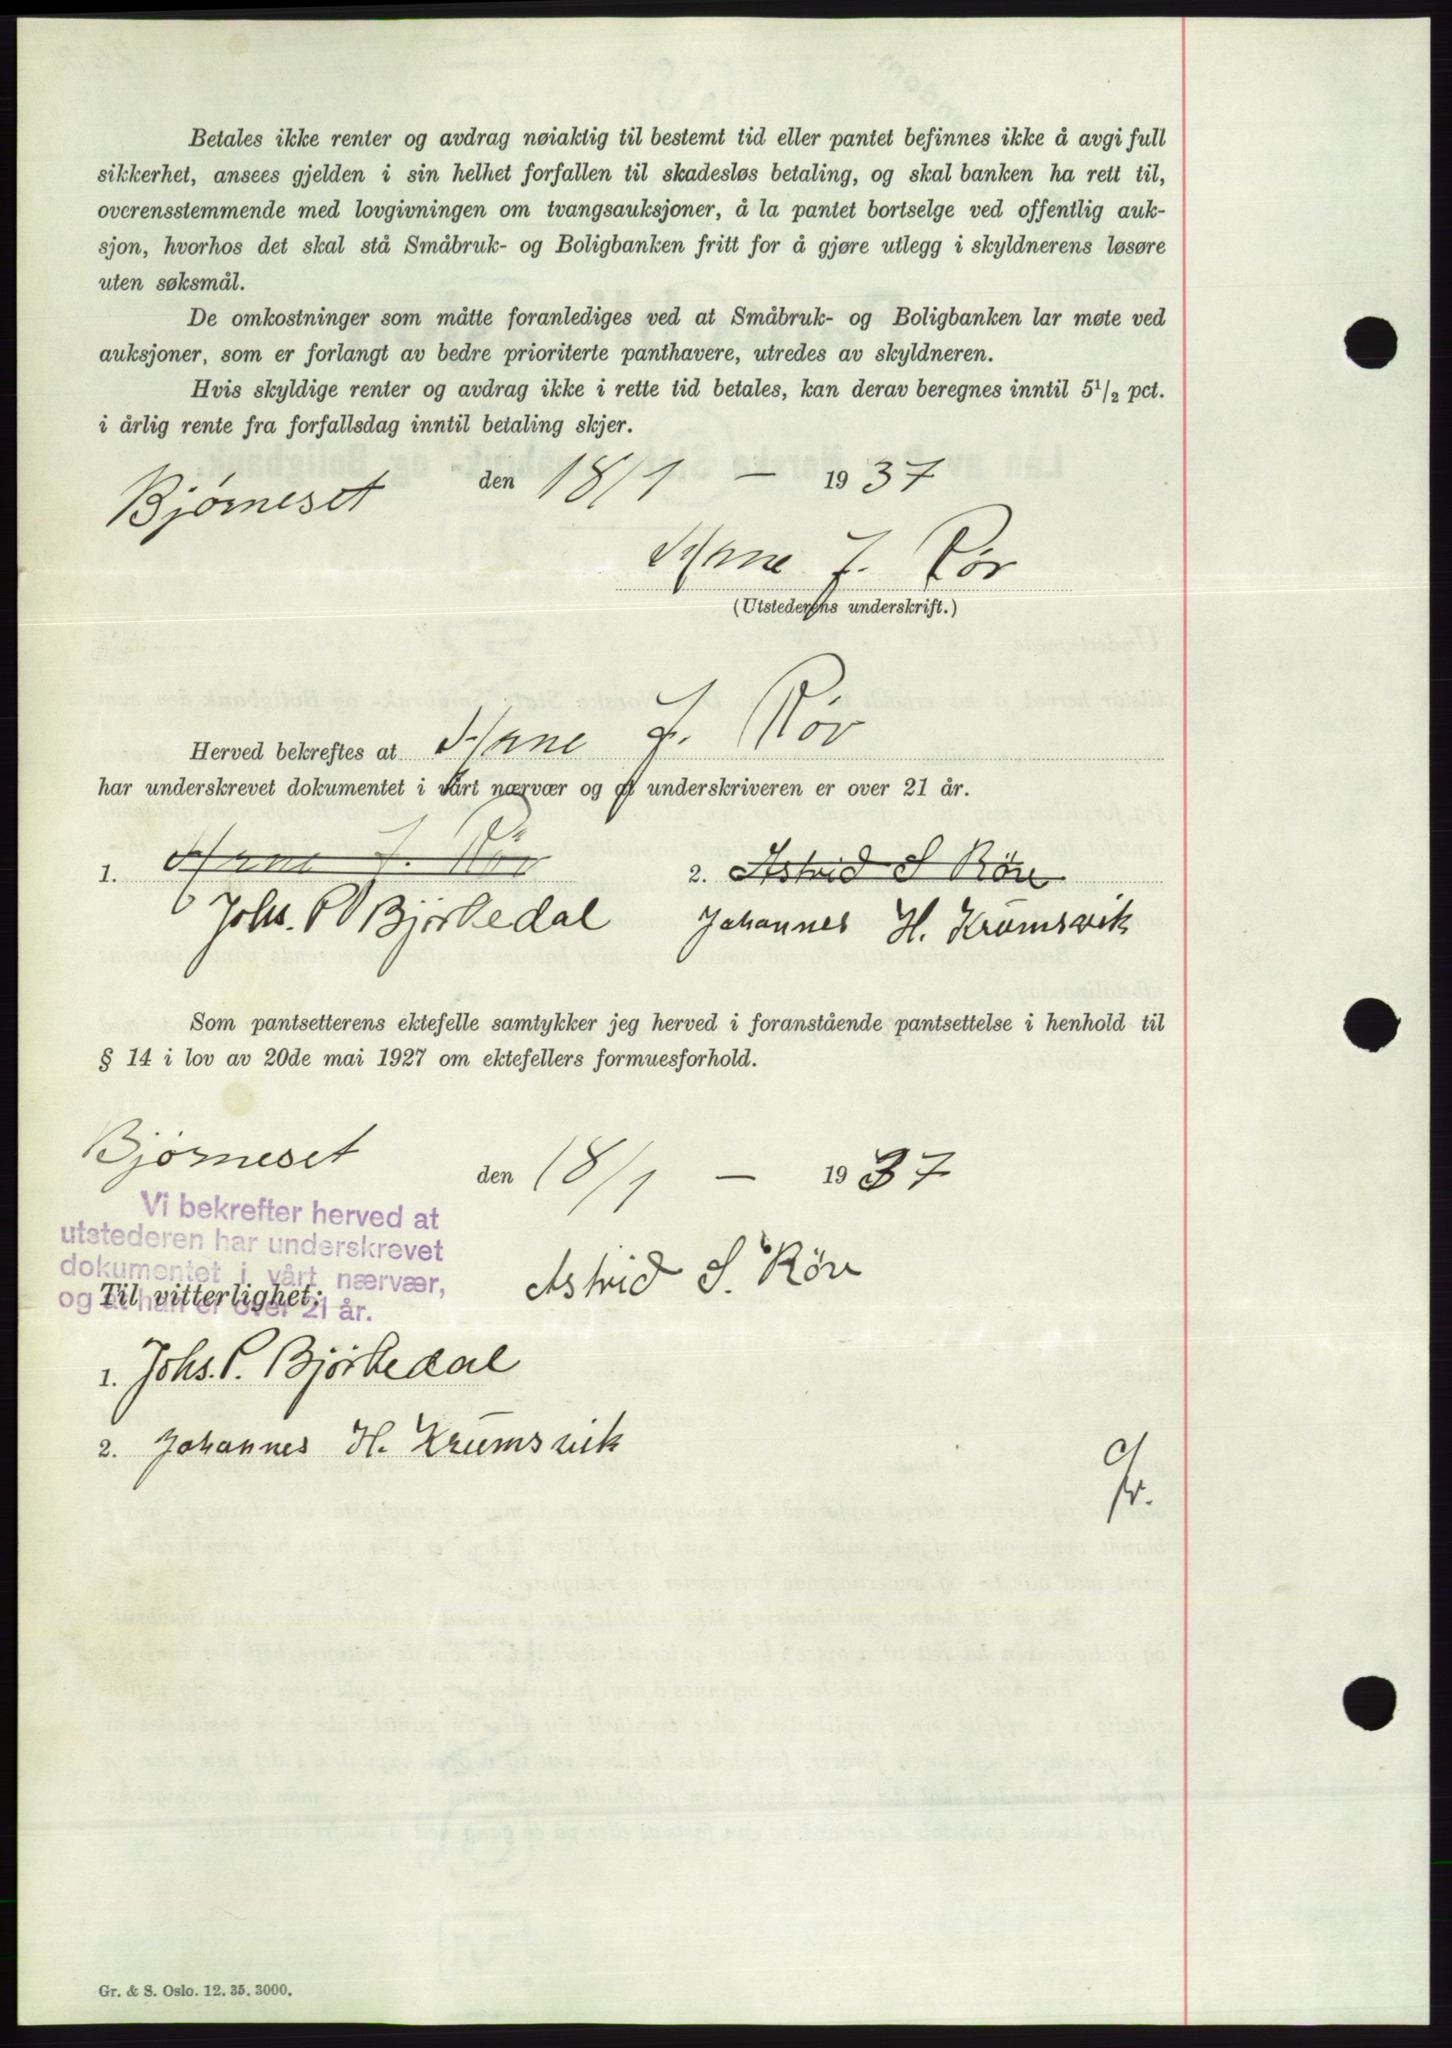 Betales ikke renter og avdrag nøiaktig til bestemt tid eller pantet befinnes ikke å avgi full
sikkerhet, ansees gjelden i sin helhet forfallen til skadesløs betaling, og skal banken ha rett til,
overensstemmende med lovgivningen om tvangsauksjoner, å la pantet bortselge ved offentlig auk-
sjon, hvorhos det skal stå Småbruk- og Boligbanken fritt for å gjøre utlegg i skyldnerens løsøre
uten søksmål.
De omkostninger som måtte foranlediges ved at Småbruk- og Boligbanken lar møte ved
auksjoner, som er forlangt av bedre prioriterte panthavere, utredes av skyldneren.
Hvis skyldige renter og avdrag ikke i rette tid betales, kan derav beregnes inntil 5 1/2 pct.
i årlig rente fra forfallsdag inntil betaling skjer.
Bjørneset den 18/1 — 1937
J. Rör
(Utstederens underskrift.)
Herved bekreftes at J. Röv
har underskrevet dokumentet i vårt nærvær og at underskriveren er over 21 år.
1. J. Rör 2. Astrid S Röv
Johs. P Bjørkedal Johannes H. Krumsvik
Som pantsetterens ektefelle samtykker jeg herved i foranstående pantsettelse i henhold til
§ 14 i lov av 20de mai 1927 om ektefellers formuesforhold.
Bjørneset den 18/1 — 1937
Vi bekrefter herved at
utstederen har underskrevet
dokumentet i vårt nærvær,
og at han er over 21 år.
Astrid S. Röv
Til vitterlighet:
1. Johs. P. Bjørkedal
2. Johannes H. Krumsvik
Gr. & S. Oslo. 12. 35. 3000.